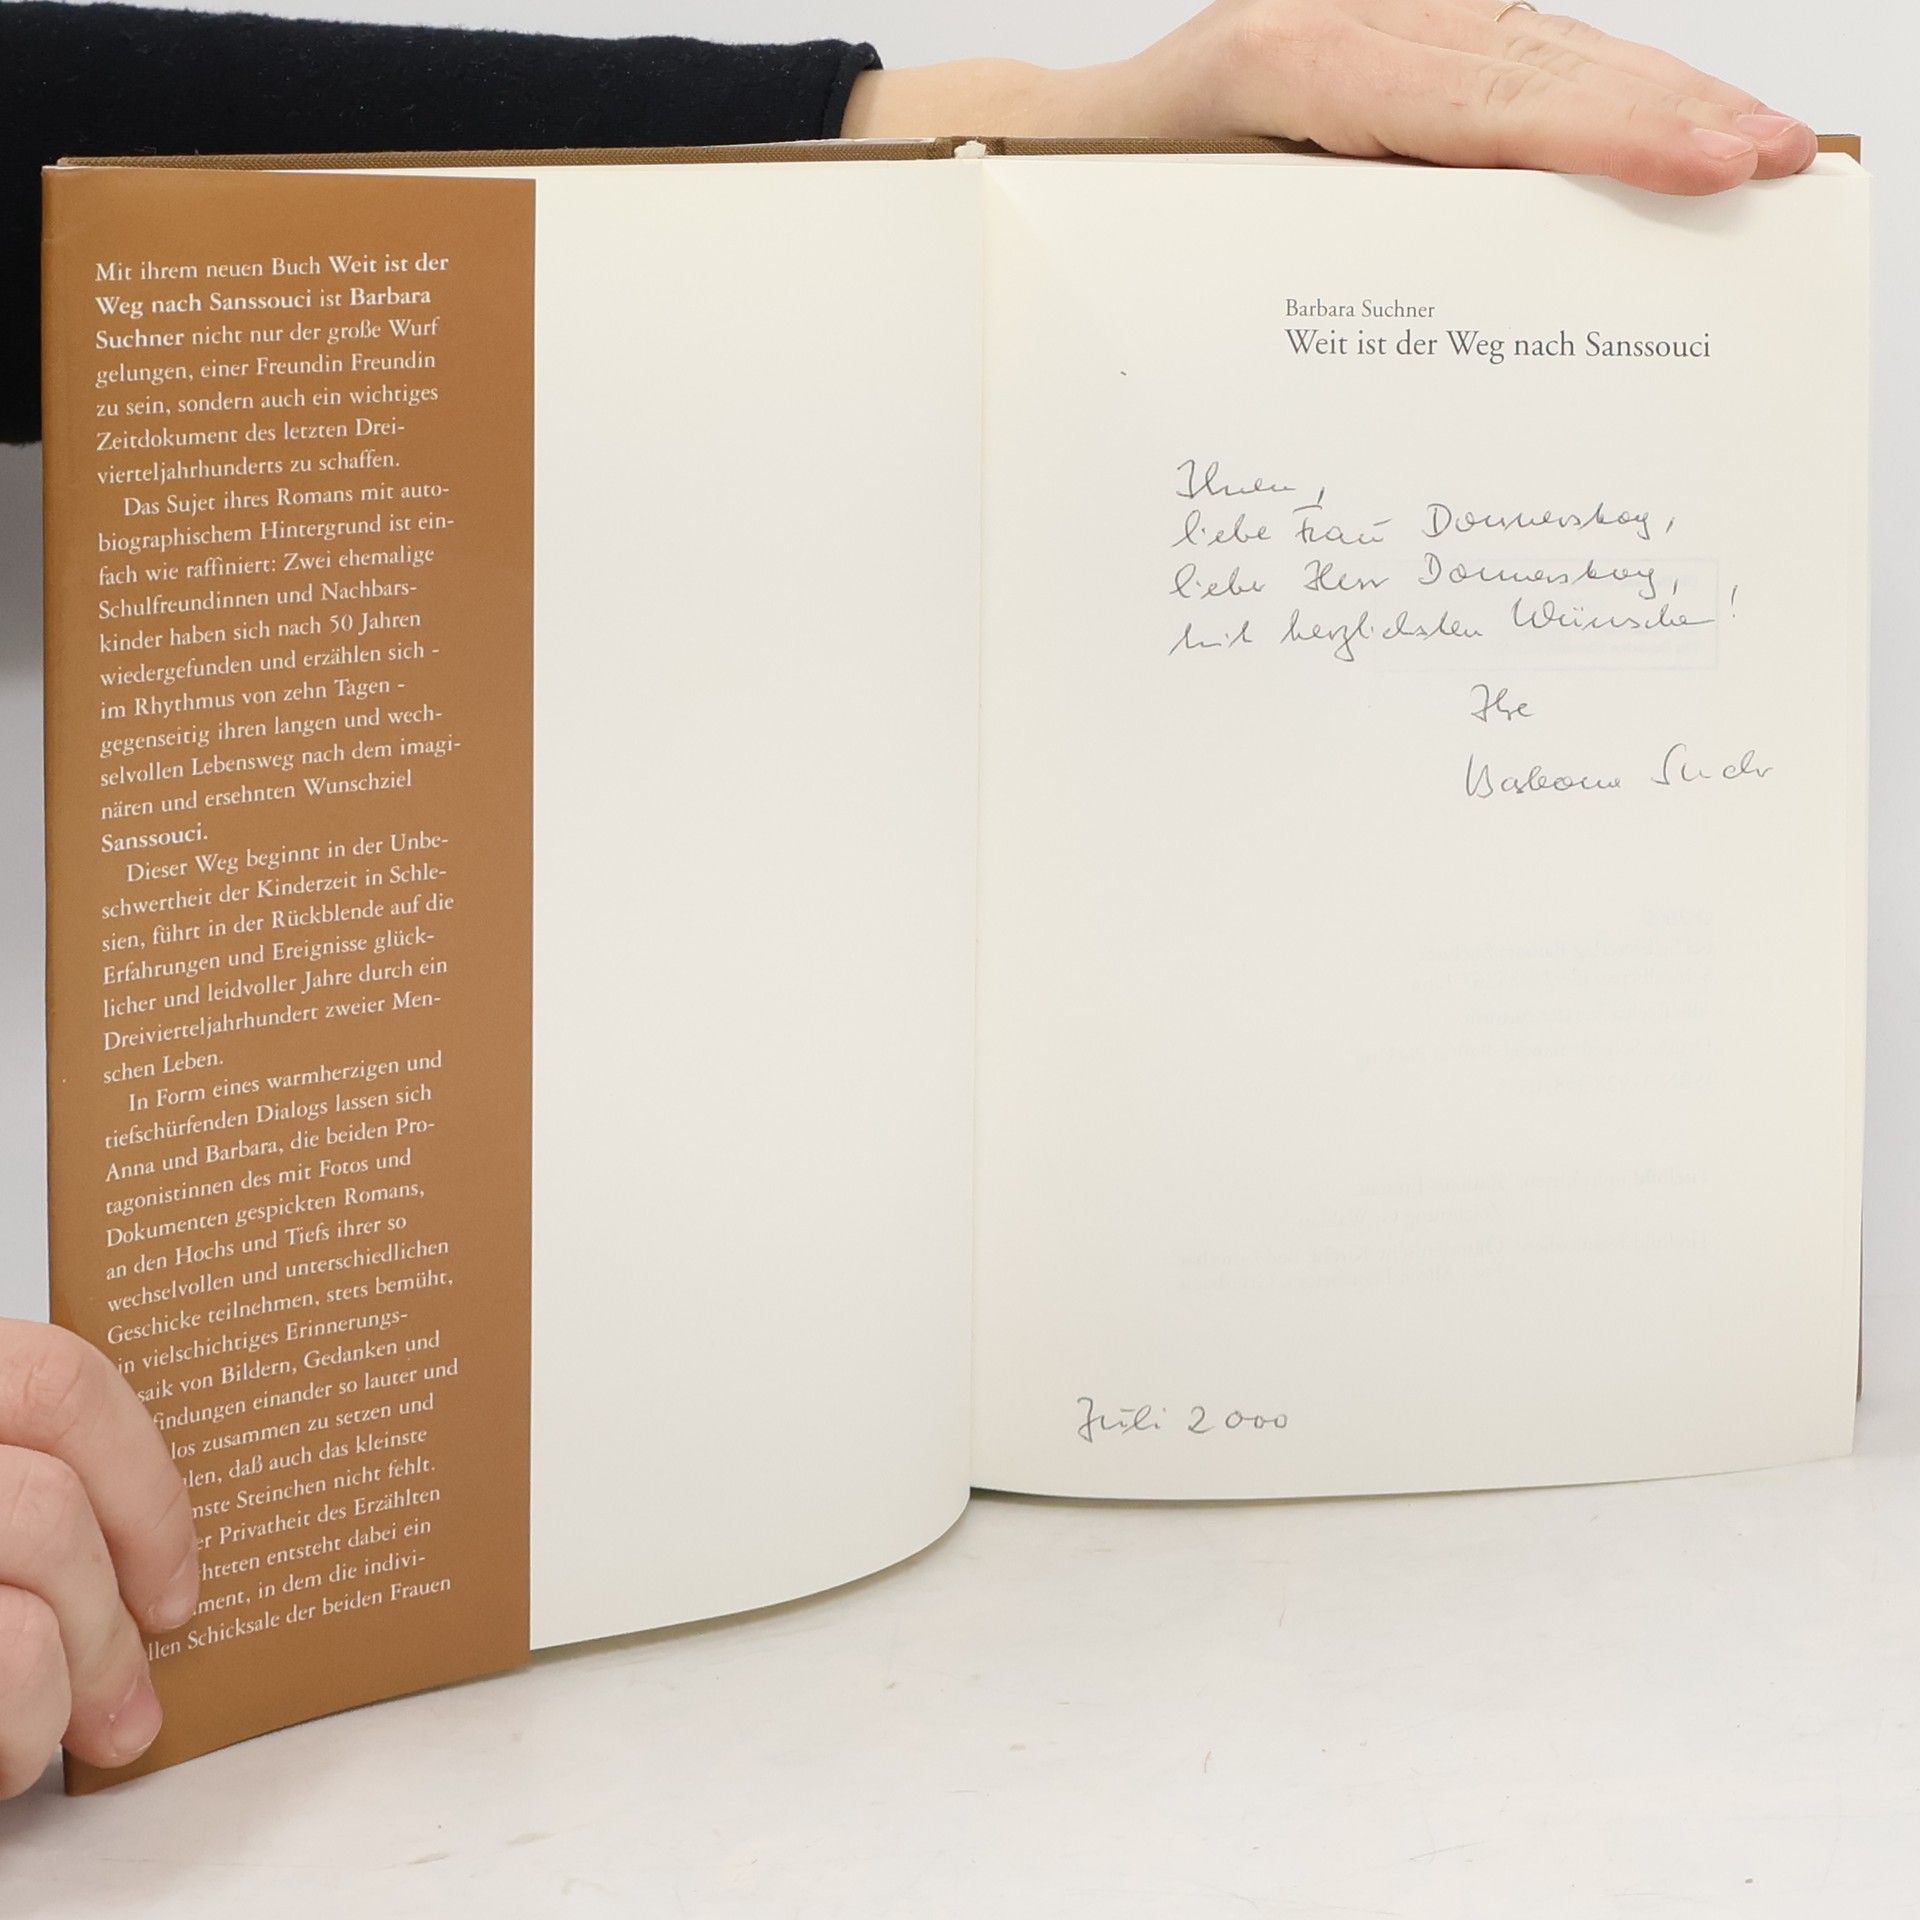 Mit ihrem neuen Buch Weit ist der
Weg nach Sanssouci ist Barbara
Suchner nicht nur der große Wurf
gelungen, einer Freundin Freundin
zu sein, sondern auch ein wichtiges
Zeitdokument des letzten Drei-
vierteljahrhunderts zu schaffen.
Das Sujet ihres Romans mit auto-
biographischem Hintergrund ist ein-
fach wie raffiniert: Zwei ehemalige
Schulfreundinnen und Nachbars-
kinder haben sich nach 50 Jahren
wiedergefunden und erzählen sich -
im Rhythmus von zehn Tagen -
gegenseitig ihren langen und wech-
selvollen Lebensweg nach dem imagi-
nären und ersehnten Wunschziel
Sanssouci.
Dieser Weg beginnt in der Unbe-
schwertheit der Kinderzeit in Schle-
sien, führt in der Rückblende auf die
Erfahrungen und Ereignisse glück-
licher und leidvoller Jahre durch ein
Dreivierteljahrhundert zweier Men-
schen Leben.
In Form eines warmherzigen und
tiefschürfenden Dialogs lassen sich
Anna und Barbara, die beiden Pro-
tagonistinnen des mit Fotos und
Dokumenten gespickten Romans,
an den Hochs und Tiefs ihrer so
wechselvollen und unterschiedlichen
Geschicke teilnehmen, stets bemüht,
in vielschichtiges Erinnerungs-
saik von Bildern, Gedanken und
findungen einander so lauter und
los zusammen zu setzen und
len, daß auch das kleinste
nste Steinchen nicht fehlt.
er Privatheit des Erzählten
hteten entsteht dabei ein
ment, in dem die indivi-
llen Schicksale der beiden Frauen
Barbara Suchner
Weit ist der Weg nach Sanssouci
Ihnen,
liebe Frau
lieber Herr
mit herzlichsten Wünschen!
Ihre
Barbara Suchner
Juli 2000